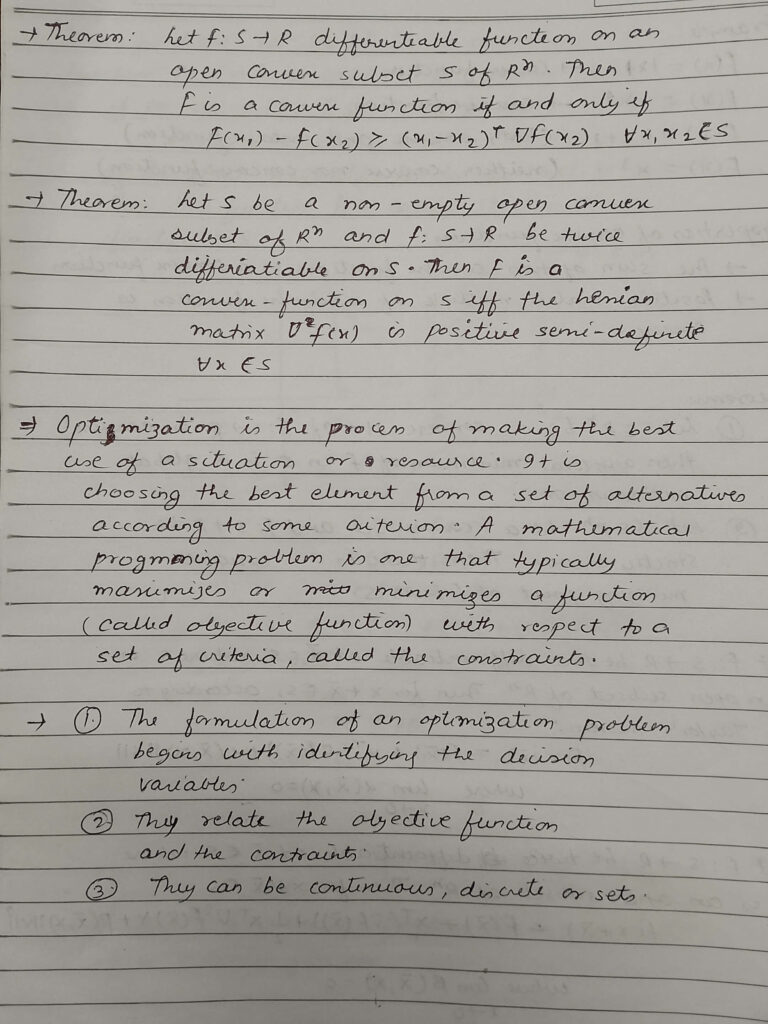 → Theorem: Let f: S→R differenteable function on an
open convex subset S of Rⁿ. Then
f is a convex function if and only if
f(x₁) - f(x₂) ≥ (x₁-x₂)ᵀ ∇f(x₂) ∀x₁, x₂ ∈ S
→ Theorem: Let S be a non-empty open convex
subset of Rⁿ and f: S→R be twice
differiatiable on S. Then f is a
convex-function on S iff the hessian
matrix ∇²f(x) is positive semi-definete
∀x ∈ S
⇒ Optimization is the process of making the best
use of a situation or resource. It is
choosing the best element from a set of alternatives
according to some criterion. A mathematical
progmming problem is one that typically
maximises or minimizes a function
(called objective function) with respect to a
set of criteria, called the constraints.
→ ① The formulation of an optimization problem
begins with identifying the decision
variables.
② They relate the objective function
and the contraints.
③ They can be continuous, discrete or sets.